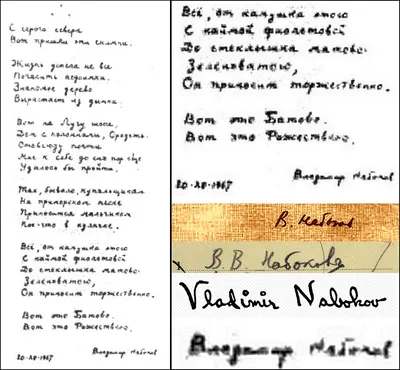 С серого севера
Вот пришли эти снимки.
Жизнь успела не все
Погасить недоимки.
Знакомое дерево
Вырастает из дымки.
Вот на Лугу шоссе,
Дом с колоннами, Оредежь.
Отовсюду почти
Мне к себе до сих пор еще
Удалось бы пройти.
Так, бывало, купальщикам
На приморском песке
Приносится мальчиком
Кое-что в кулачке.
Всё, от камушка этого
С каймой фиолетовой
До стеклышка матово-
Зеленоватого,
Он приносит торжественно.
Вот это Батово.
Вот это Рожествено.
Владимир Набоков
20-XII-1967
Всё, от камушка этого
С каймой фиолетовой
До стеклышка матово-
Зеленоватого,
Он приносит торжественно.
Вот это Батово.
Вот это Рожествено.
Владимир Набоков
20-XII-1967
В. Набоков
В. В. Набоковъ
Vladimir Nabokov
Владимир Набоков